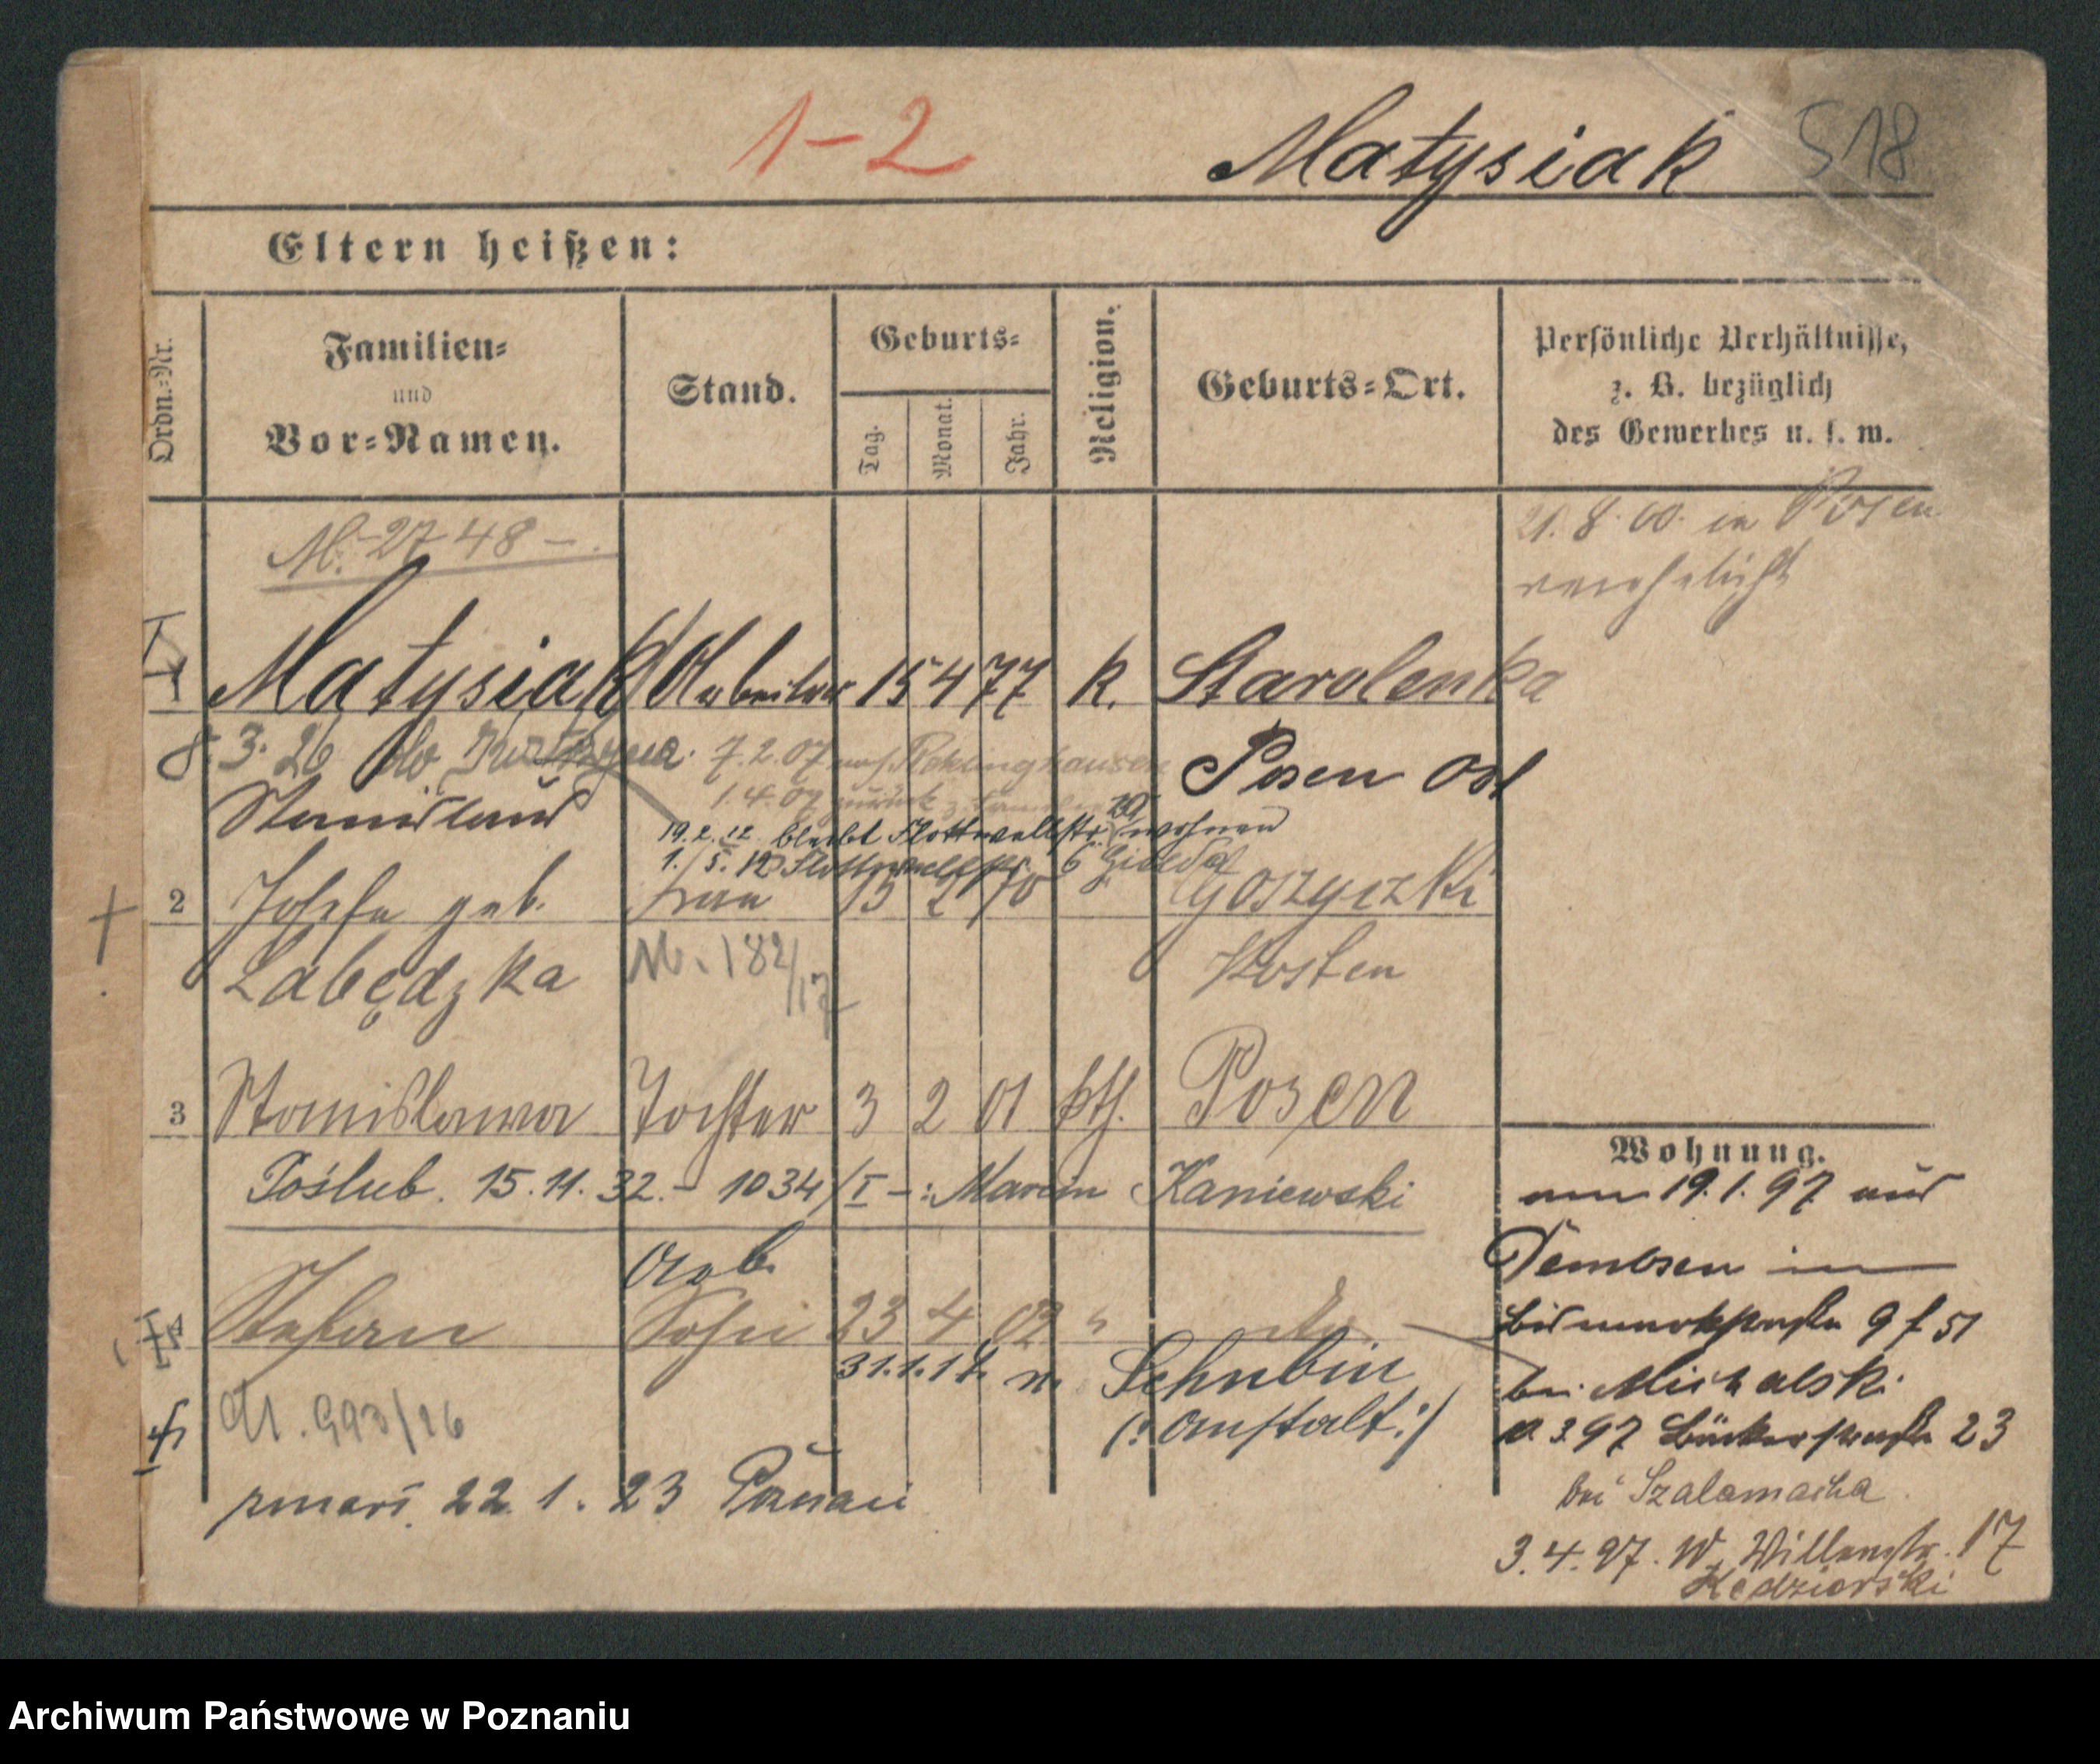 1-2 Matysiak 518
Eltern heißen:
Ordn.=Nr.
Familien=
und
Vor=Namen.
Stand.
Geburts=
Tag. Monat. Jahr.
Religion.
Geburts=Ort.
Persönliche Verhältnisse,
z. B. bezüglich
des Gewerbes u. s. w.
M. 2748 -.
21. 8. 00. in Posen
verehelicht
1 Matysiak Arbeiter 15 4 77 k. Starolenka
8. 3. 26 do 7. 2. 07 nach Reklinghausen Posen Ost
1. 4. 07 zurück
Stanislaus
19. 2. 12. bleibt Flottwellstr. wohnen
1./5. 12 Flottwellstr. 6
2 Josefa geb. Frau 15 2 70 Goszyczki
Łabędzka M. 182/17 Kosten
3 Stanislawa Tochter 3 2 01 kth. Posen
Poślub. 15. 11. 32. - 1034/I -: Marcin Kaniewski
Arb.
Stefan Sohn 23 4 02 "
31. 1. 17. n. Schubin
(: Anstalt :)
M. 993/26
zmarł 22. 1. 23 Poznań
Wohnung.
am 19. 1. 97 aus
Dembsen in
Bismarckstraße 9 f 51
bei Michalski
3 97 Bäckerstraße 23
bei Szalamacha
3. 4. 97. W. 17
Kędziorski
Archiwum Państwowe w Poznaniu